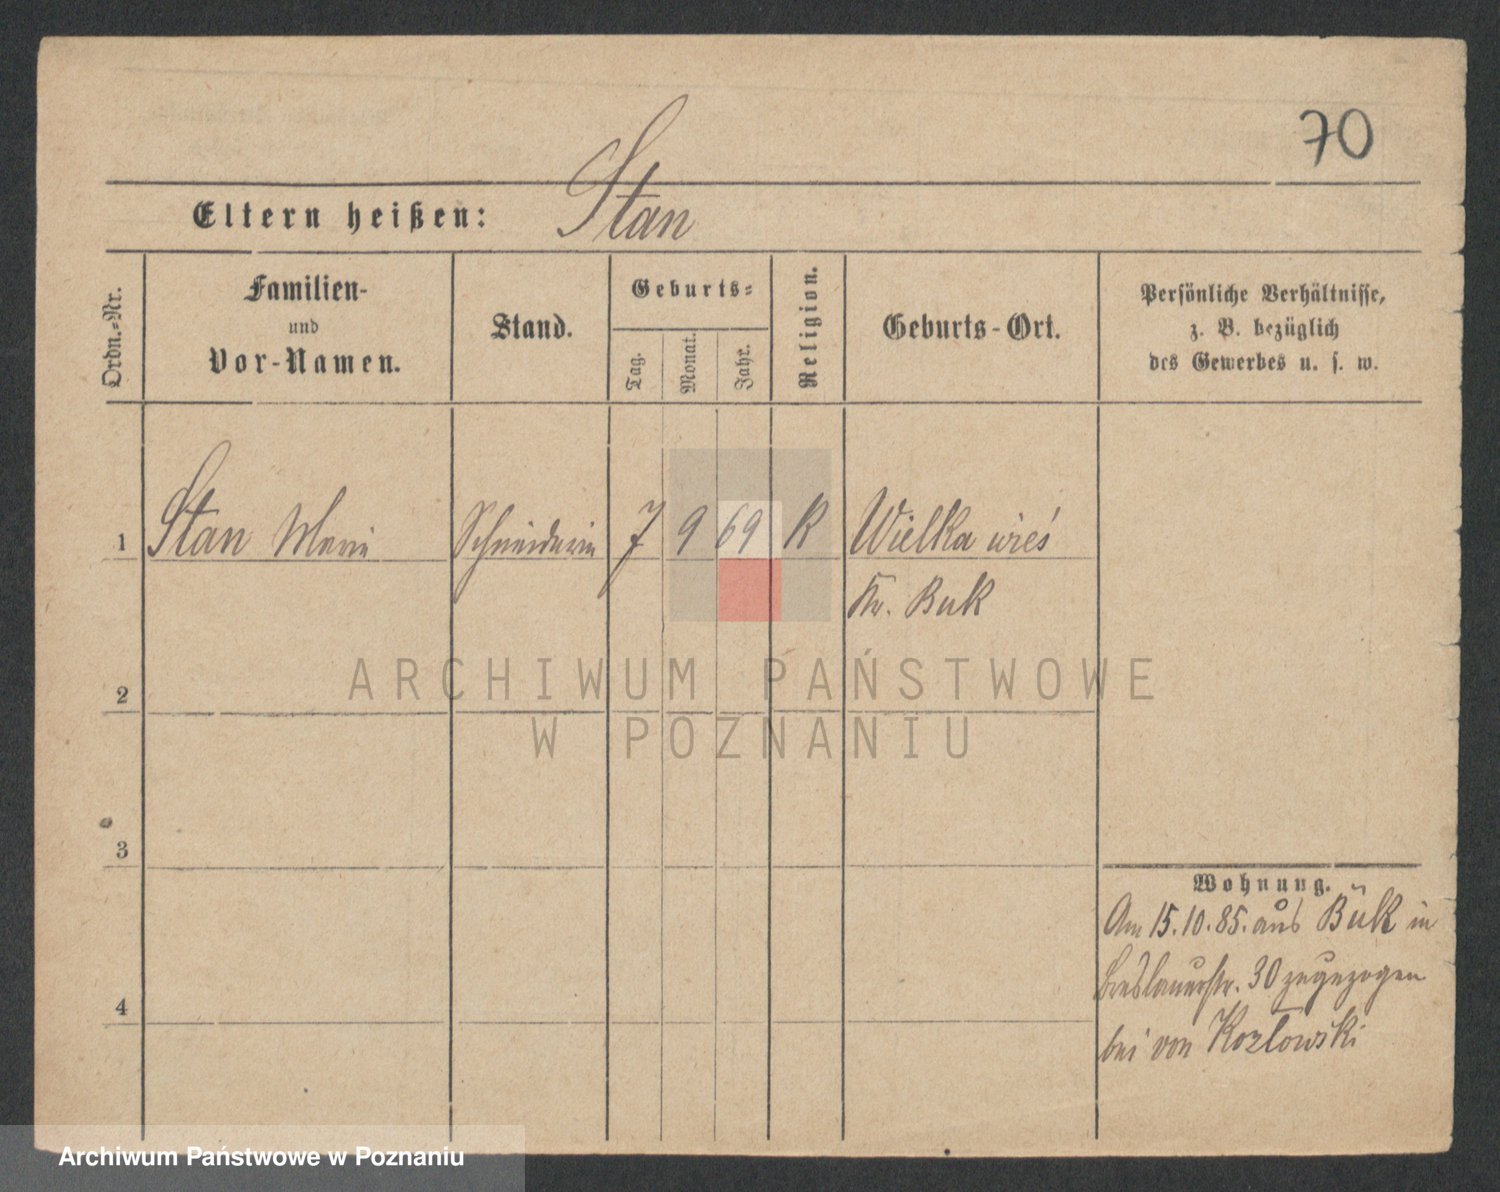 70
Eltern heißen: Stan
Ordn.-Nr.
Familien-
und
Vor-Namen.
Stand.
Geburts-
Tag.
Monat.
Jahr.
Religion.
Geburts-Ort.
Persönliche Verhältnisse,
z. B. bezüglich
des Gewerbes u. s. w.
1 Stan Marie Schneiderin 7 9 69 K Wielka wieś
Kr. Buk
2
3
4
Wohnung.
Am 15.10.85. aus Buk in
Breslauerstr. 30 zugezogen
bei von Kozłowski
ARCHIWUM PAŃSTWOWE
W POZNANIU
Archiwum Państwowe w Poznaniu